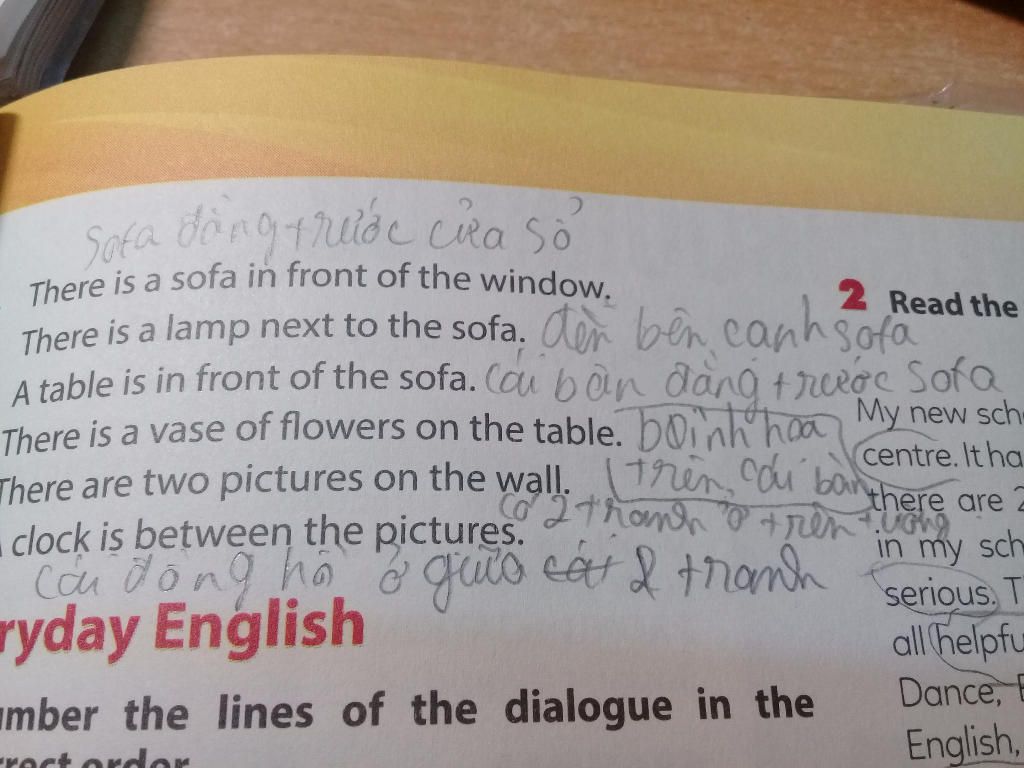 Sofa đằng trước cửa sổ
There is a sofa in front of the window.
There is a lamp next to the sofa. đèn bên cạnh sofa
A table is in front of the sofa. Cái bàn đằng trước Sofa
There is a vase of flowers on the table. bình hoa
There are two pictures on the wall. trên cái bàn
có 2 tranh ở trên tường
clock is between the pictures.
Cái đồng hồ ở giữa cái 2 tranh
ryday English
umber the lines of the dialogue in the
rrect order
2 Read the
My new scho
centre. It ha
there are 2
in my sch
serious. T
all helpfu
Dance, E
English,